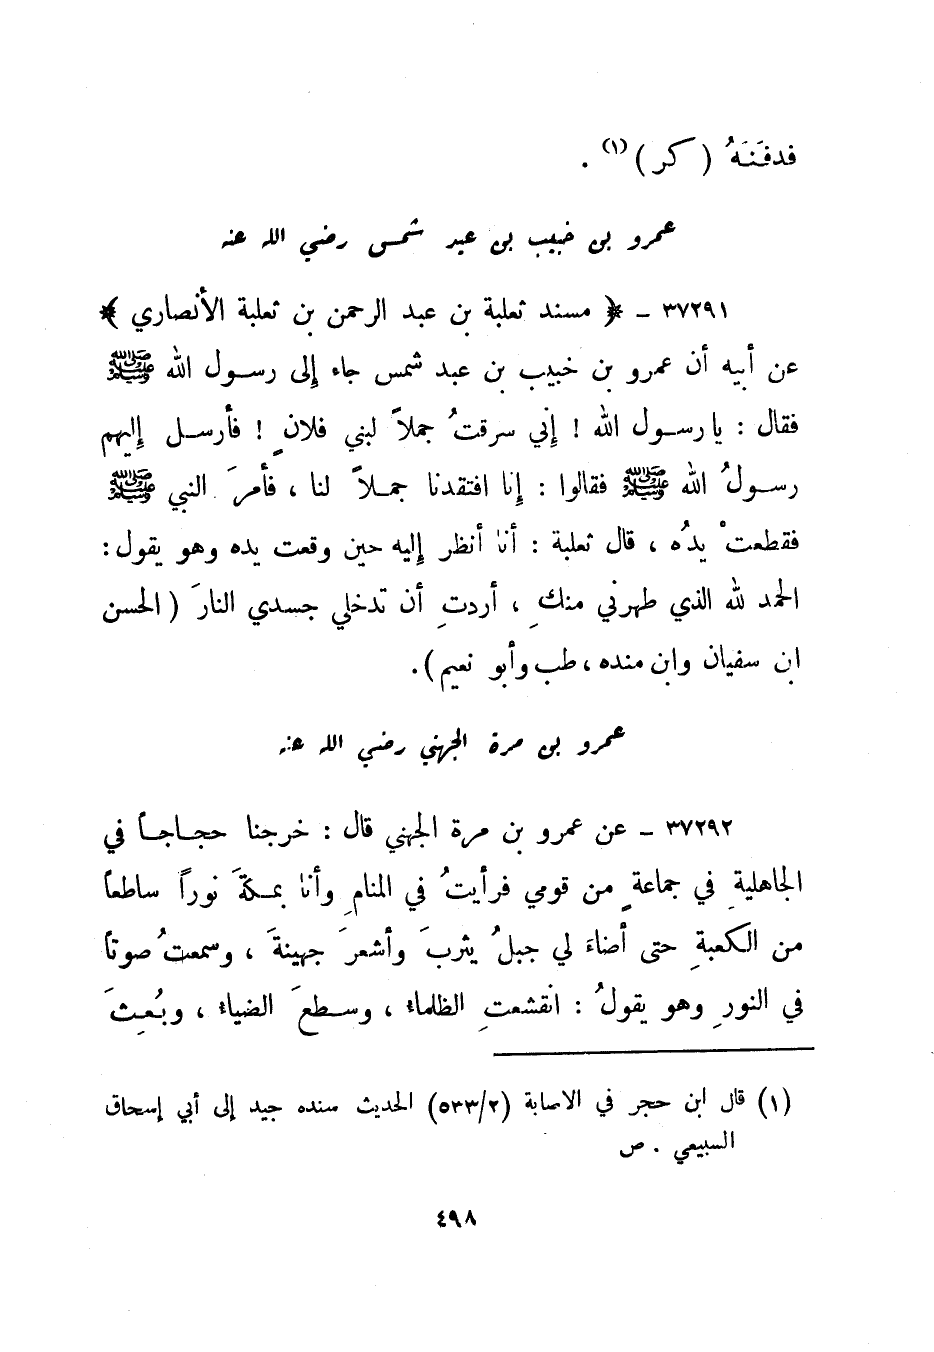 فدفنَهُ ( كر ) (١) .
عمرو بن خبيب بن عبد شمس رضي الله عنه
٣٧٢٩١ - ﴿ مسند ثعلبة بن عبد الرحمن بن ثعلبة الأنصاري ﴾
عن أبيه أن عمرو بن خبيب بن عبد شمس جاء إلى رسول الله ﷺ
فقال : يا رسول الله ! إني سرقتُ جملاً لبني فلانٍ ! فأرسل إليهم
رسولُ الله ﷺ فقالوا : إنا افتقدنا جملاً لنا ، فأمرَ النبي ﷺ
فقطعتْ يدُه ، قال ثعلبة : أنا أنظر إليه حين وقعت يده وهو يقول :
الحمد لله الذي طهرني منكِ ، أردتِ أن تدخلي جسدي النارَ ( الحسن
ابن سفيان وابن منده ، طب وأبو نعيم ) .
عمرو بن مرة الجهني رضي الله عنه
٣٧٢٩٢ - عن عمرو بن مرة الجهني قال : خرجنا حجاجاً في
الجاهليةِ في جماعةٍ من قومي فرأيتُ في المنامِ وأنا بمكةَ نوراً ساطعاً
من الكعبةِ حتى أضاءَ لي جبلُ يثربَ وأشعرَ جهينةَ ، وسمعتُ صوتاً
في النورِ وهو يقولُ : انقشعتِ الظلماء ، وسطعَ الضياء ، وبُعِثَ
(١) قال ابن حجر في الاصابة (٥٣٣/٢) الحديث سنده جيد إلى أبي إسحاق
السبيعي . ص
٤٩٨